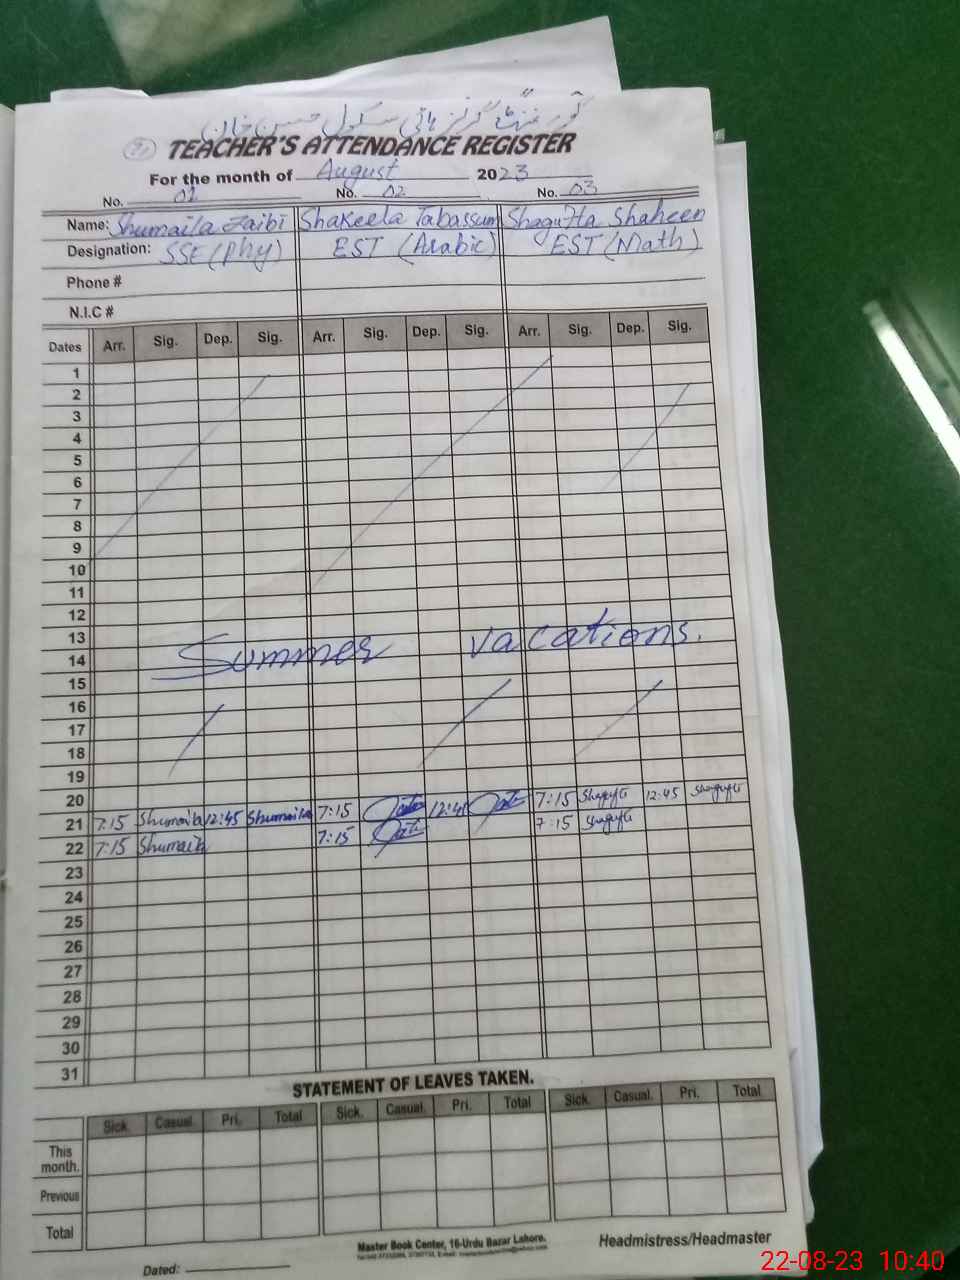 گورنمنٹ گرلز ہائی سکول حسین خان
TEACHER'S ATTENDANCE REGISTER
For the month of August 2023
No. 01 No. 02 No. 03
Name: Shumaila Zaibi Shakeela Tabassum Shagufta Shaheen
Designation: SSE (Phy) EST (Arabic) EST (Math)
Phone #
N.I.C #
Dates Arr. Sig. Dep. Sig. Arr. Sig. Dep. Sig. Arr. Sig. Dep. Sig.
1
2
3
4
5
6
7
8
9
10
11
12
13
Summer vacations.
14
15
16
17
18
19
20
21 7:15 Shumaila 12:45 Shumaila 7:15 12:45 7:15 Shagufta 12:45 Shagufta
22 7:15 Shumaila 7:15 7:15 Shagufta
23
24
25
26
27
28
29
30
31
STATEMENT OF LEAVES TAKEN.
Sick. Casual. Pri. Total Sick. Casual. Pri. Total Sick. Casual. Pri. Total
This month.
Previous
Total
Master Book Center, 16-Urdu Bazar Lahore.
Headmistress/Headmaster
Dated:
22-08-23 10:40